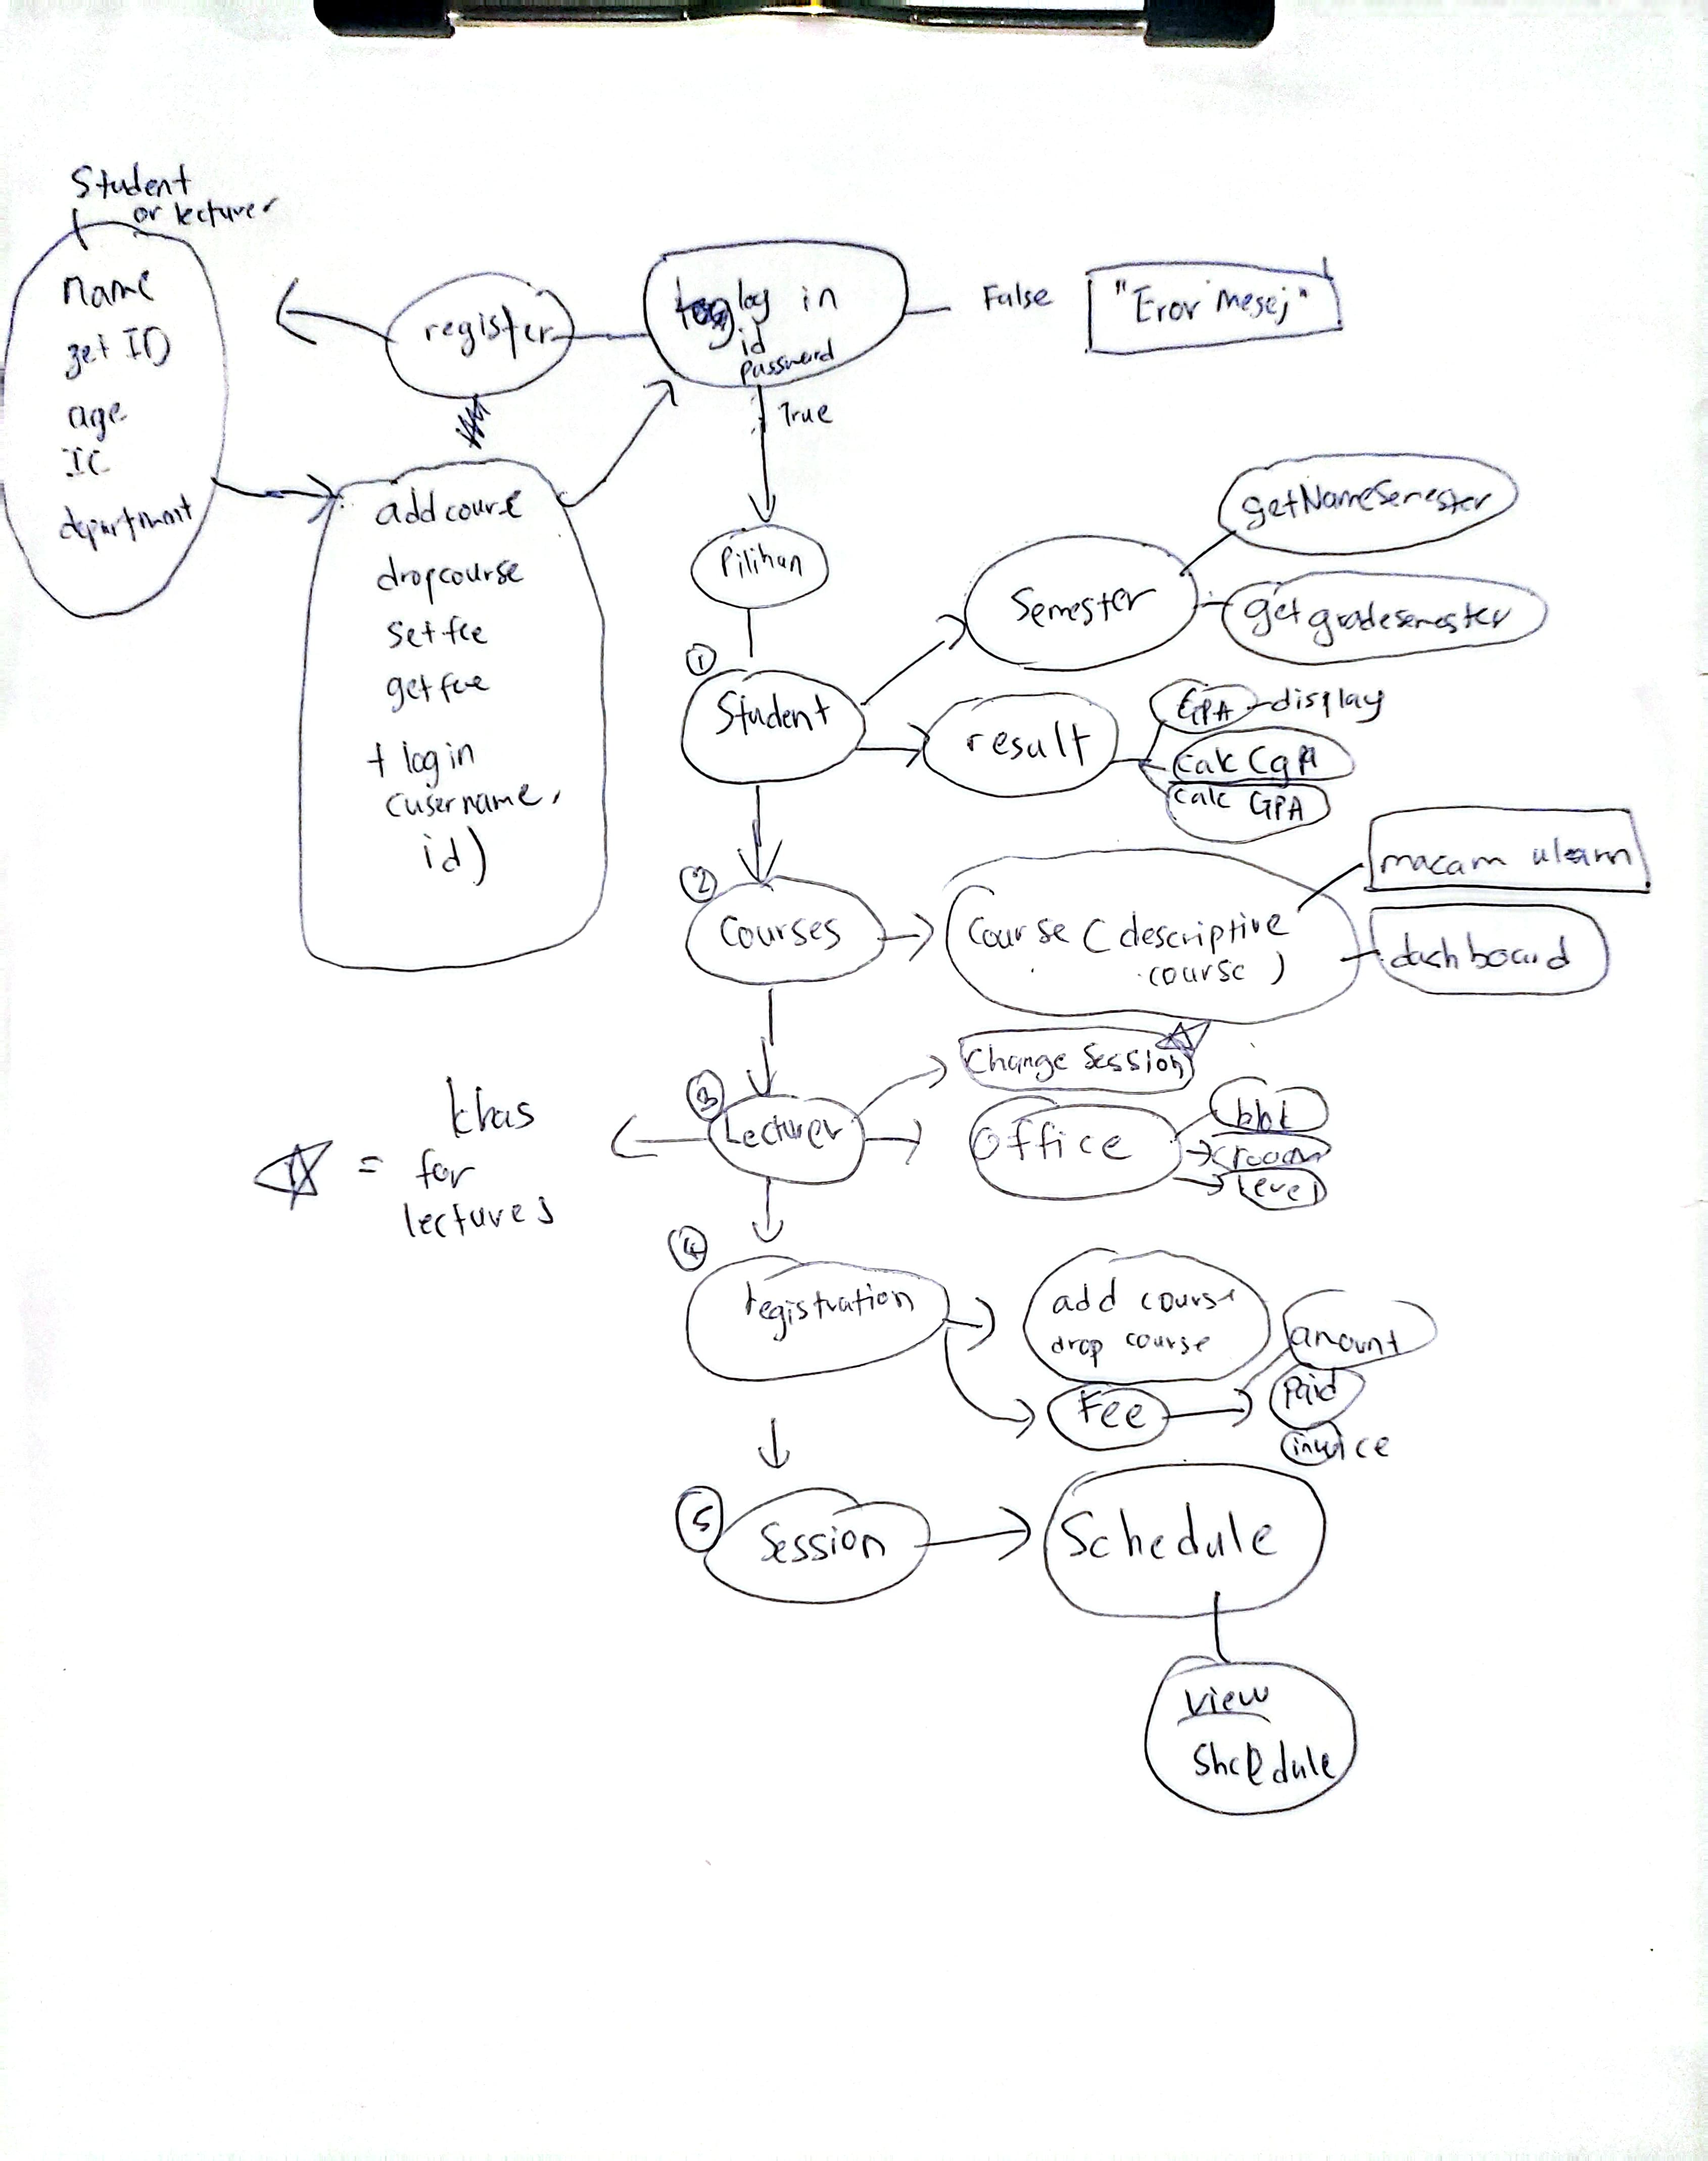 Student
or lecturer
name
get ID
age
IC
department
register
log in
id
password
False
"Eror mesej"
True
add course
dropcourse
set fee
get fee
+ login
(username,
id)
Pilihan
①
Student
Semester
getNameSemester
getgradesemester
result
GPA - display
calc CgPA
calc GPA
②
Courses
Course (descriptive
course)
macam ulearn
dashboard
③
Lecturer
Change Session
Office
room
level
khas
= for
lectures
④
registration
add course
drop course
Fee
amount
Paid
invoice
⑤
Session
Schedule
View
Shcedule